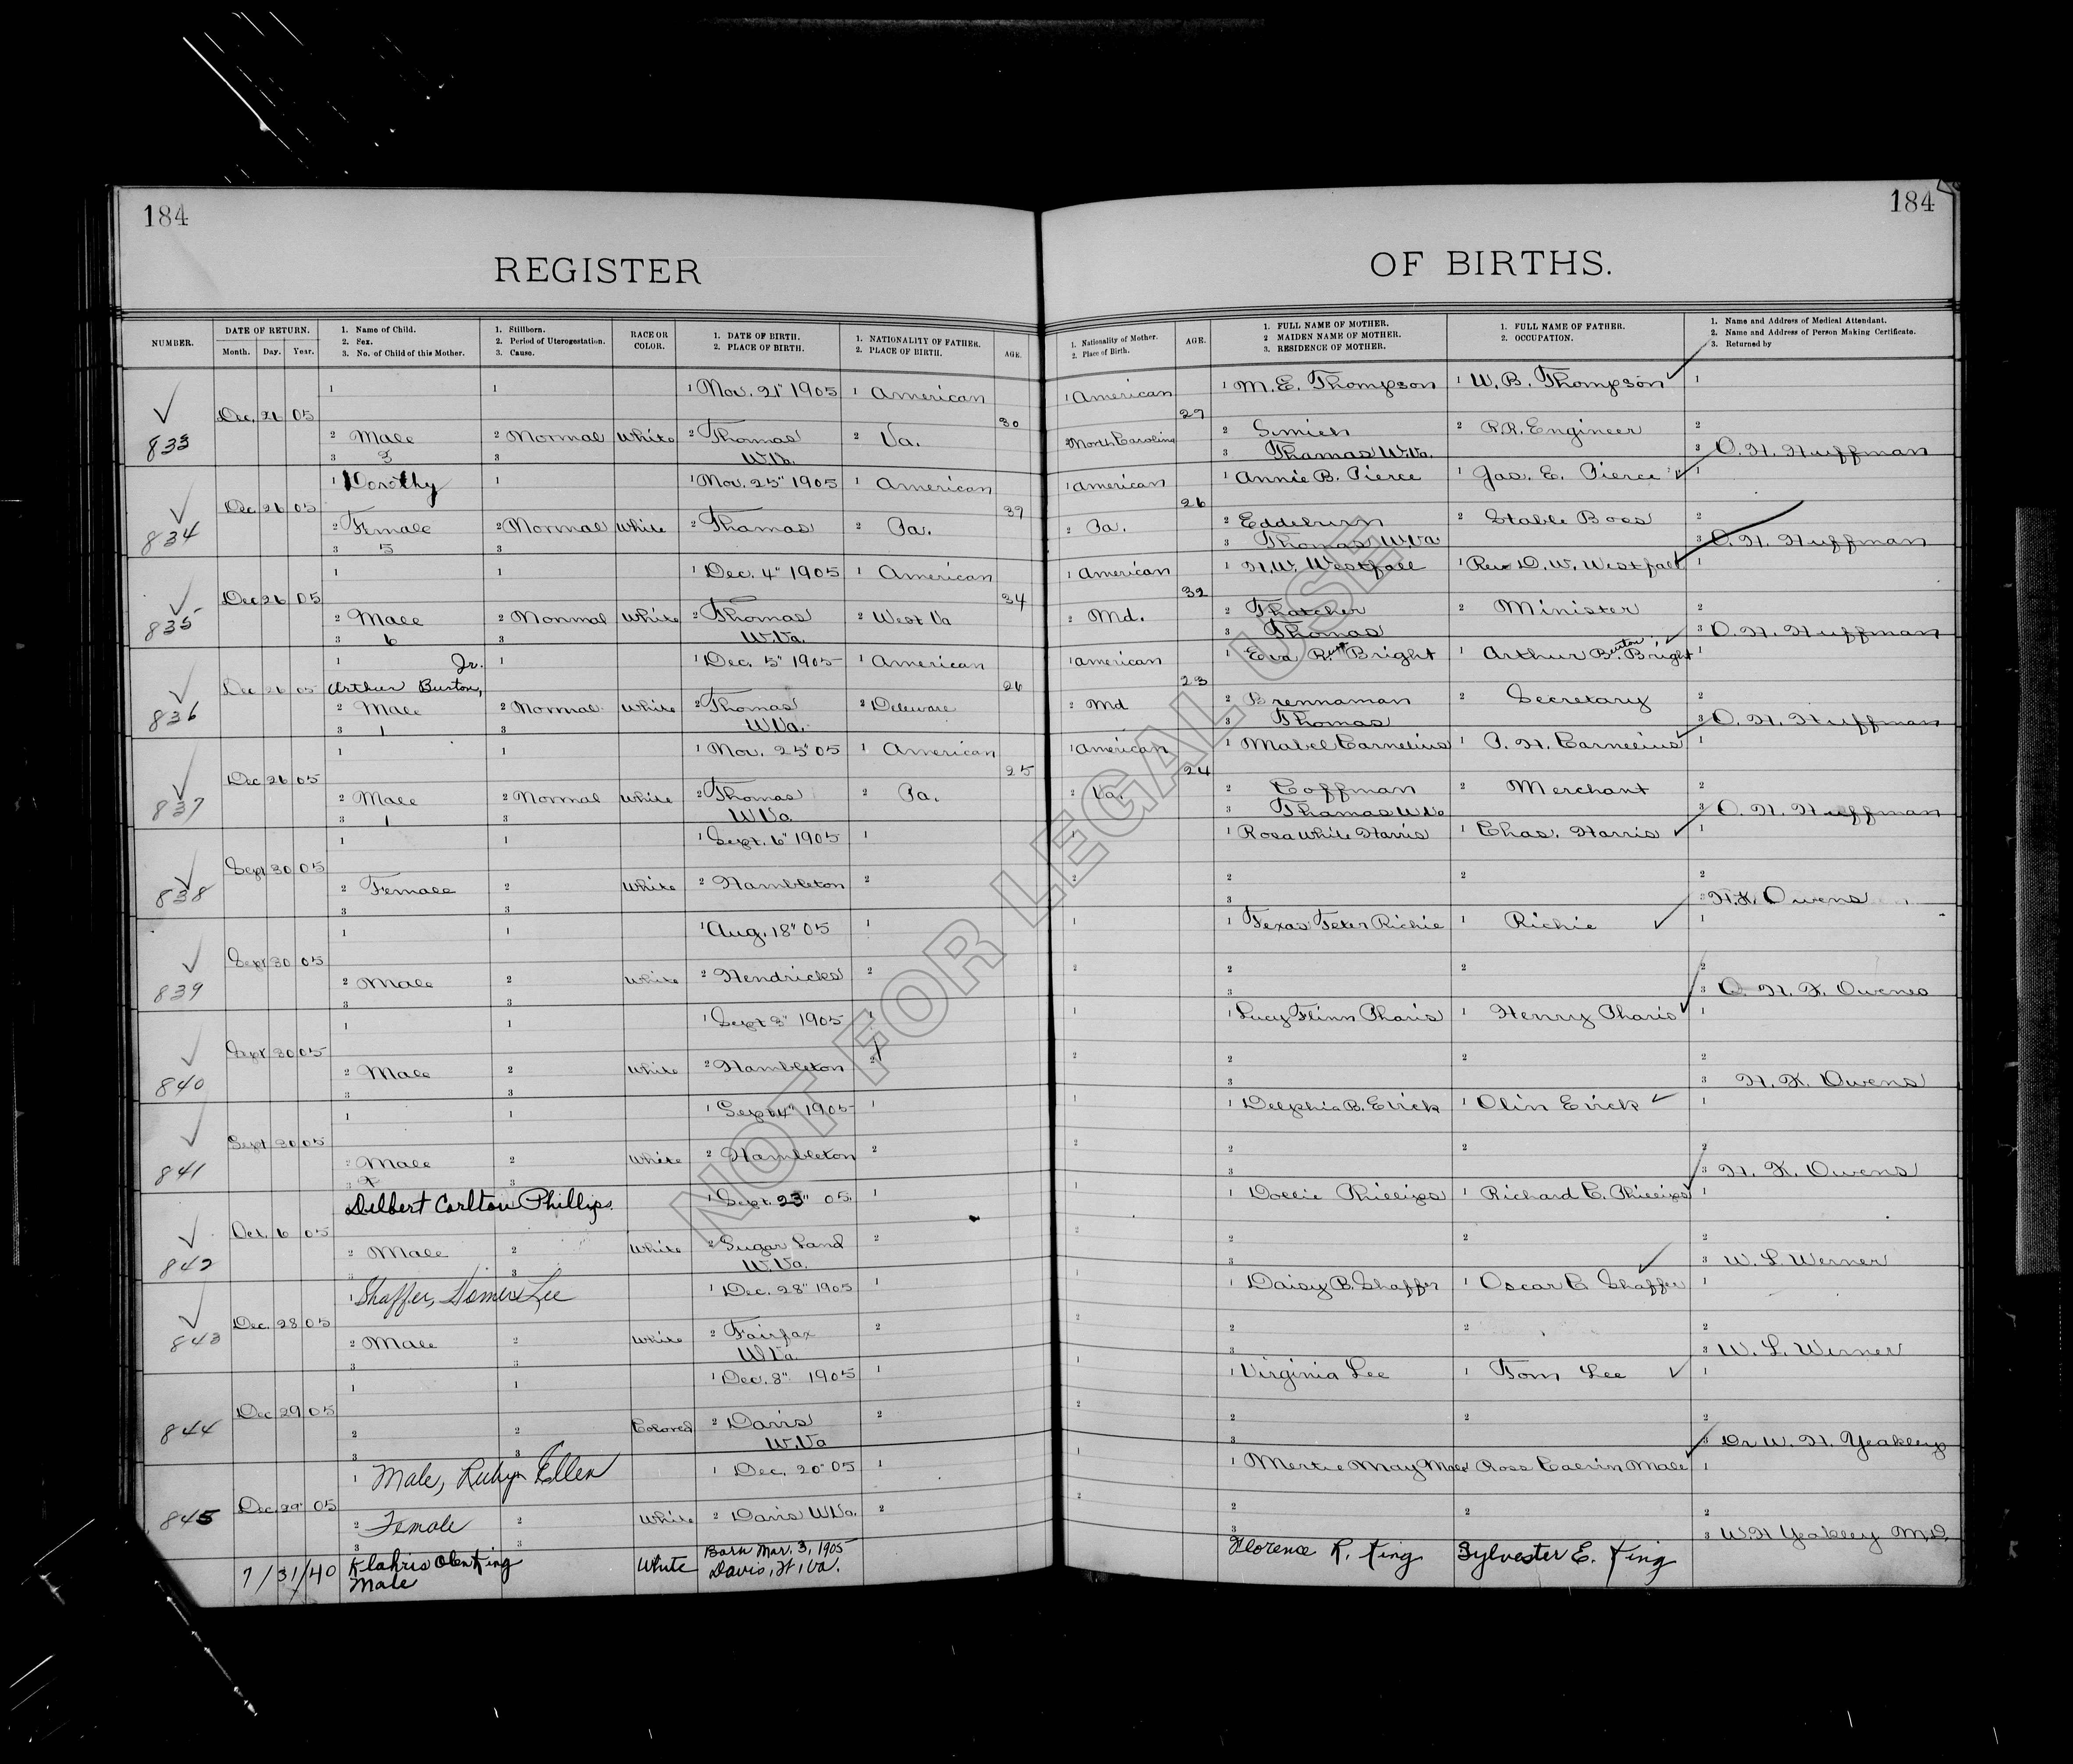 184
184
REGISTER
OF BIRTHS.
NUMBER.
DATE OF RETURN.
Month. Day. Year.
1. Name of Child.
2. Sex.
3. No. of Child of this Mother.
1. Stillborn.
2. Period of Uterogestation.
3. Cause.
RACE OR
COLOR.
1. DATE OF BIRTH.
2. PLACE OF BIRTH.
1. NATIONALITY OF FATHER.
2. PLACE OF BIRTH.
AGE.
1. Nationality of Mother.
2. Place of Birth.
AGE.
1. FULL NAME OF MOTHER.
2 MAIDEN NAME OF MOTHER.
3. RESIDENCE OF MOTHER.
1. FULL NAME OF FATHER.
2. OCCUPATION.
1. Name and Address of Medical Attendant.
2. Name and Address of Person Making Certificate.
3. Returned by
1 1 1 Nov. 21" 1905 1 American 1 American 1 M. E. Thompson 1 W. B. Thompson 1
Dec. 26 05 30 29
833 2 Male 2 Normal White 2 Thomas 2 Va. 2 North Carolina 2 2 R.R. Engineer 2
3 3 3 W.Va. 3 Thomas W.Va. 3 O. H. Huffman
1 Dorothy 1 1 Nov. 25" 1905 1 American 1 American 1 Annie B. Pierce 1 Jas. E. Pierce 1
Dec 26 05 39 26
834 2 Female 2 Normal White 2 Thomas 2 Pa. 2 Pa. 2 Eddeburn 2 Stable Boss 2
3 5 3 3 Thomas W.Va 3 O. H. Huffman
1 1 1 Dec. 4" 1905 1 American 1 American 1 H.W. Westfall 1 Rev D. W. Westfall 1
Dec 26 05 34 32
835 2 Male 2 Normal White 2 Thomas 2 West Va 2 Md. 2 Thatcher 2 Minister 2
3 6 3 W.Va. 3 Thomas 3 O. H. Huffman
1 Jr. 1 1 Dec. 5" 1905 1 American 1 American 1 Eva R. Bright 1 Arthur B.urton Bright 1
Dec 26 05 Arthur Burton, 26 23
836 2 Male 2 Normal White 2 Thomas 2 Deleware 2 Md 2 Brennaman 2 Secretary 2
3 1 3 W.Va. 3 Thomas 3 O. H. Huffman
1 1 1 Nov. 25" 05 1 American 1 American 1 Mabel Cornelius 1 P. H. Cornelius 1
Dec 26 05 25 24
837 2 Male 2 Normal White 2 Thomas 2 Pa. 2 Va. 2 Coffman 2 Merchant 2
3 1 3 W.Va 3 Thomas W.Va 3 O. H. Huffman
1 1 1 Sept. 6" 1905 1 1 1 Rosa White Harris 1 Chas. Harris 1
Sept 30 05
838 2 Female 2 White 2 Hambleton 2 2 2 2 2
3 3 3 H.K. Owens
1 1 1 Aug. 18" 05 1 1 1 Texas Teter Richie 1 Richie 1
Sept 30 05
839 2 Male 2 White 2 Hendricks 2 2 2 2 2
3 3 3 3 H. K. Owens
1 1 1 Sept 3" 1905 1 1 1 Lucy Flinn Pharis 1 Henry Pharis 1
Sept 30 05
840 2 Male 2 White 2 Hambleton 2 2 2 2 2
3 3 3 3 H. K. Owens
1 1 1 Sept 4" 1905 1 1 1 Delphia B. Erick 1 Olin Erick 1
Sept 30 05
841 2 Male 2 White 2 Hambleton 2 2 2 2 2
3 3 3 3 H. K. Owens
Delbert Carlton Phillips 1 Sept. 23" 05 1 1 1 Dollie Phillips 1 Richard C. Phillips 1
Oct. 6 05
842 2 Male 2 White 2 Sugar Land 2 2 2 2 2
3 3 W.Va. 3 3 W. L. Werner
1 Shaffer, Homer Lee 1 Dec. 28" 1905 1 1 1 Daisy B. Shaffer 1 Oscar C. Shaffer 1
Dec. 28 05
843 2 Male 2 White 2 Fairfax 2 2 2 2 2
3 3 W.Va. 3 3 W. L. Werner
1 1 1 Dec. 8" 1905 1 1 1 Virginia Lee 1 Tom Lee 1
Dec 29 05
844 2 2 Colored 2 Davis 2 2 2 2 2
3 3 W.Va 3 3 Dr W. H. Yeakley
1 Male, Ruby Ellen 1 Dec. 20" 05 1 1 1 Mertie May Male 1 Ross Calvin Male 1
Dec 29" 05
845 2 Female 2 White 2 Davis W.Va. 2 2 2 2 2
3 3 3 3 W.H Yeakley M.D.
7/31/40 Klahris Olen King White Born Mar. 3, 1905 Florence R. King Sylvester E. King
Male Davis, W. Va.
NOT FOR LEGAL USE